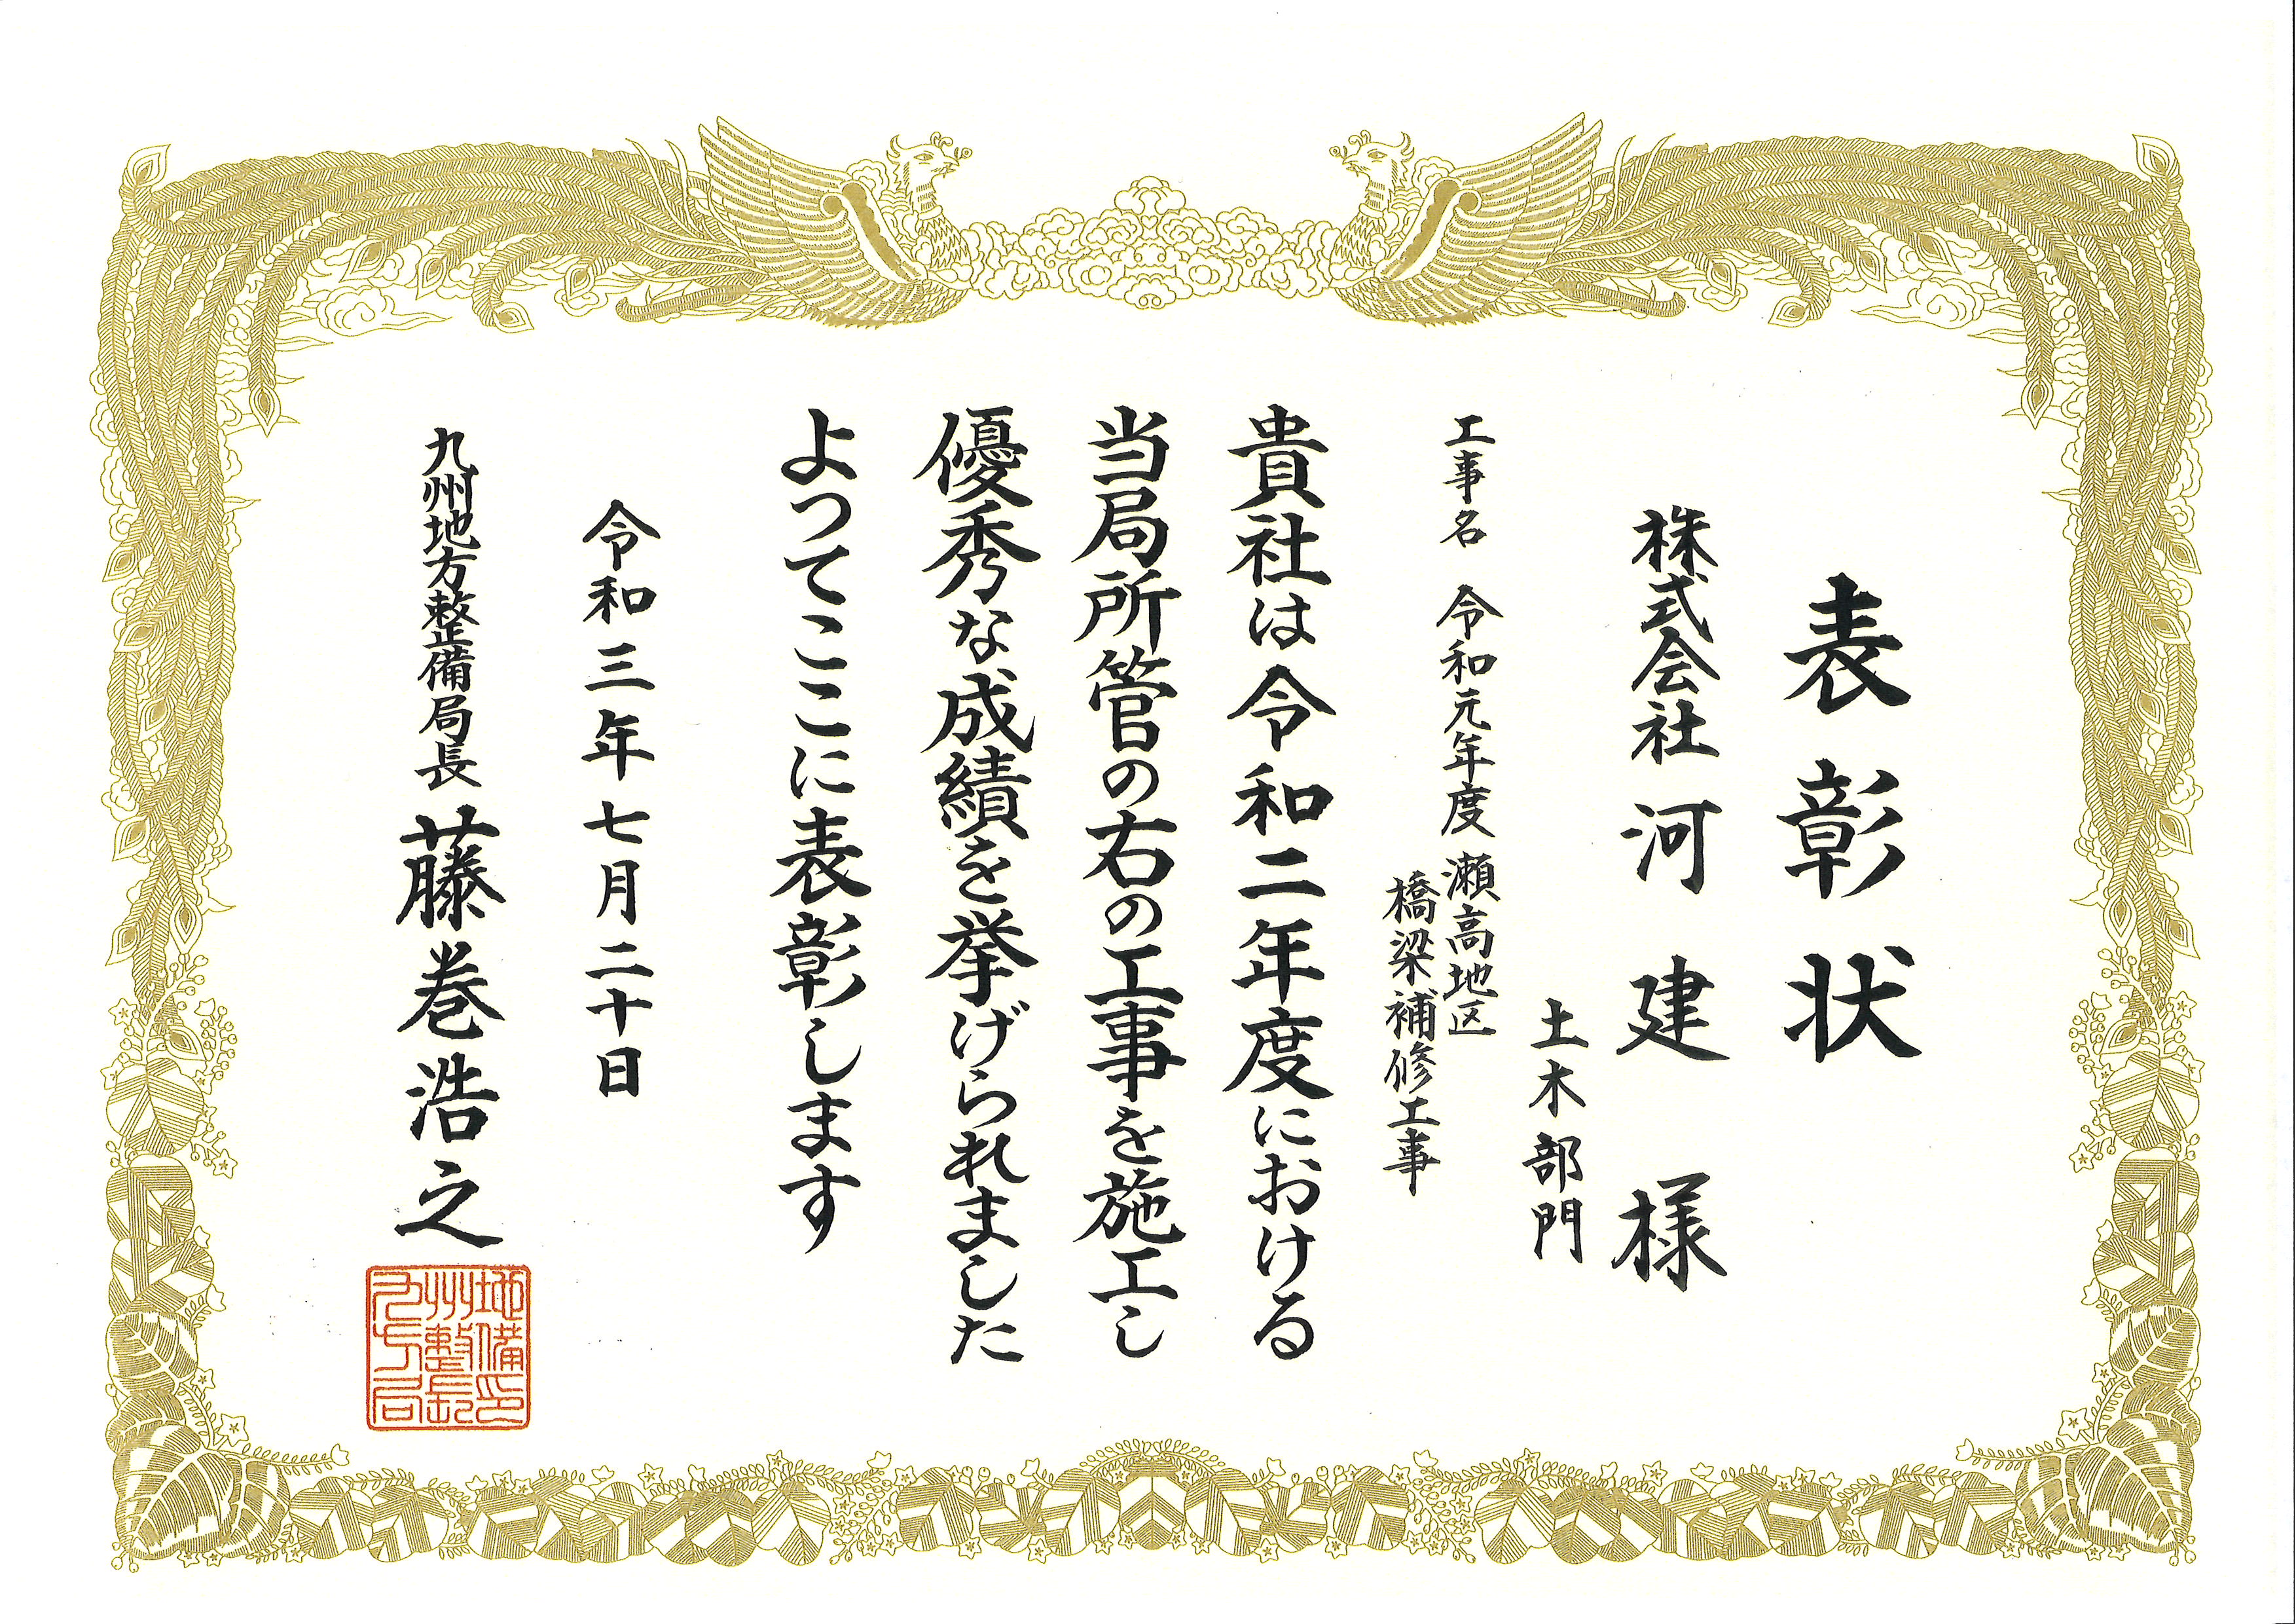 表彰状
株式会社 河建 様
土木部門
工事名 令和元年度 瀬高地区
橋梁補修工事
貴社は令和二年度における
当局所管の右の工事を施工し
優秀な成績を挙げられました
よってここに表彰します
令和三年七月二十日
九州地方整備局長 藤巻浩之
地備印
州整長
九方局